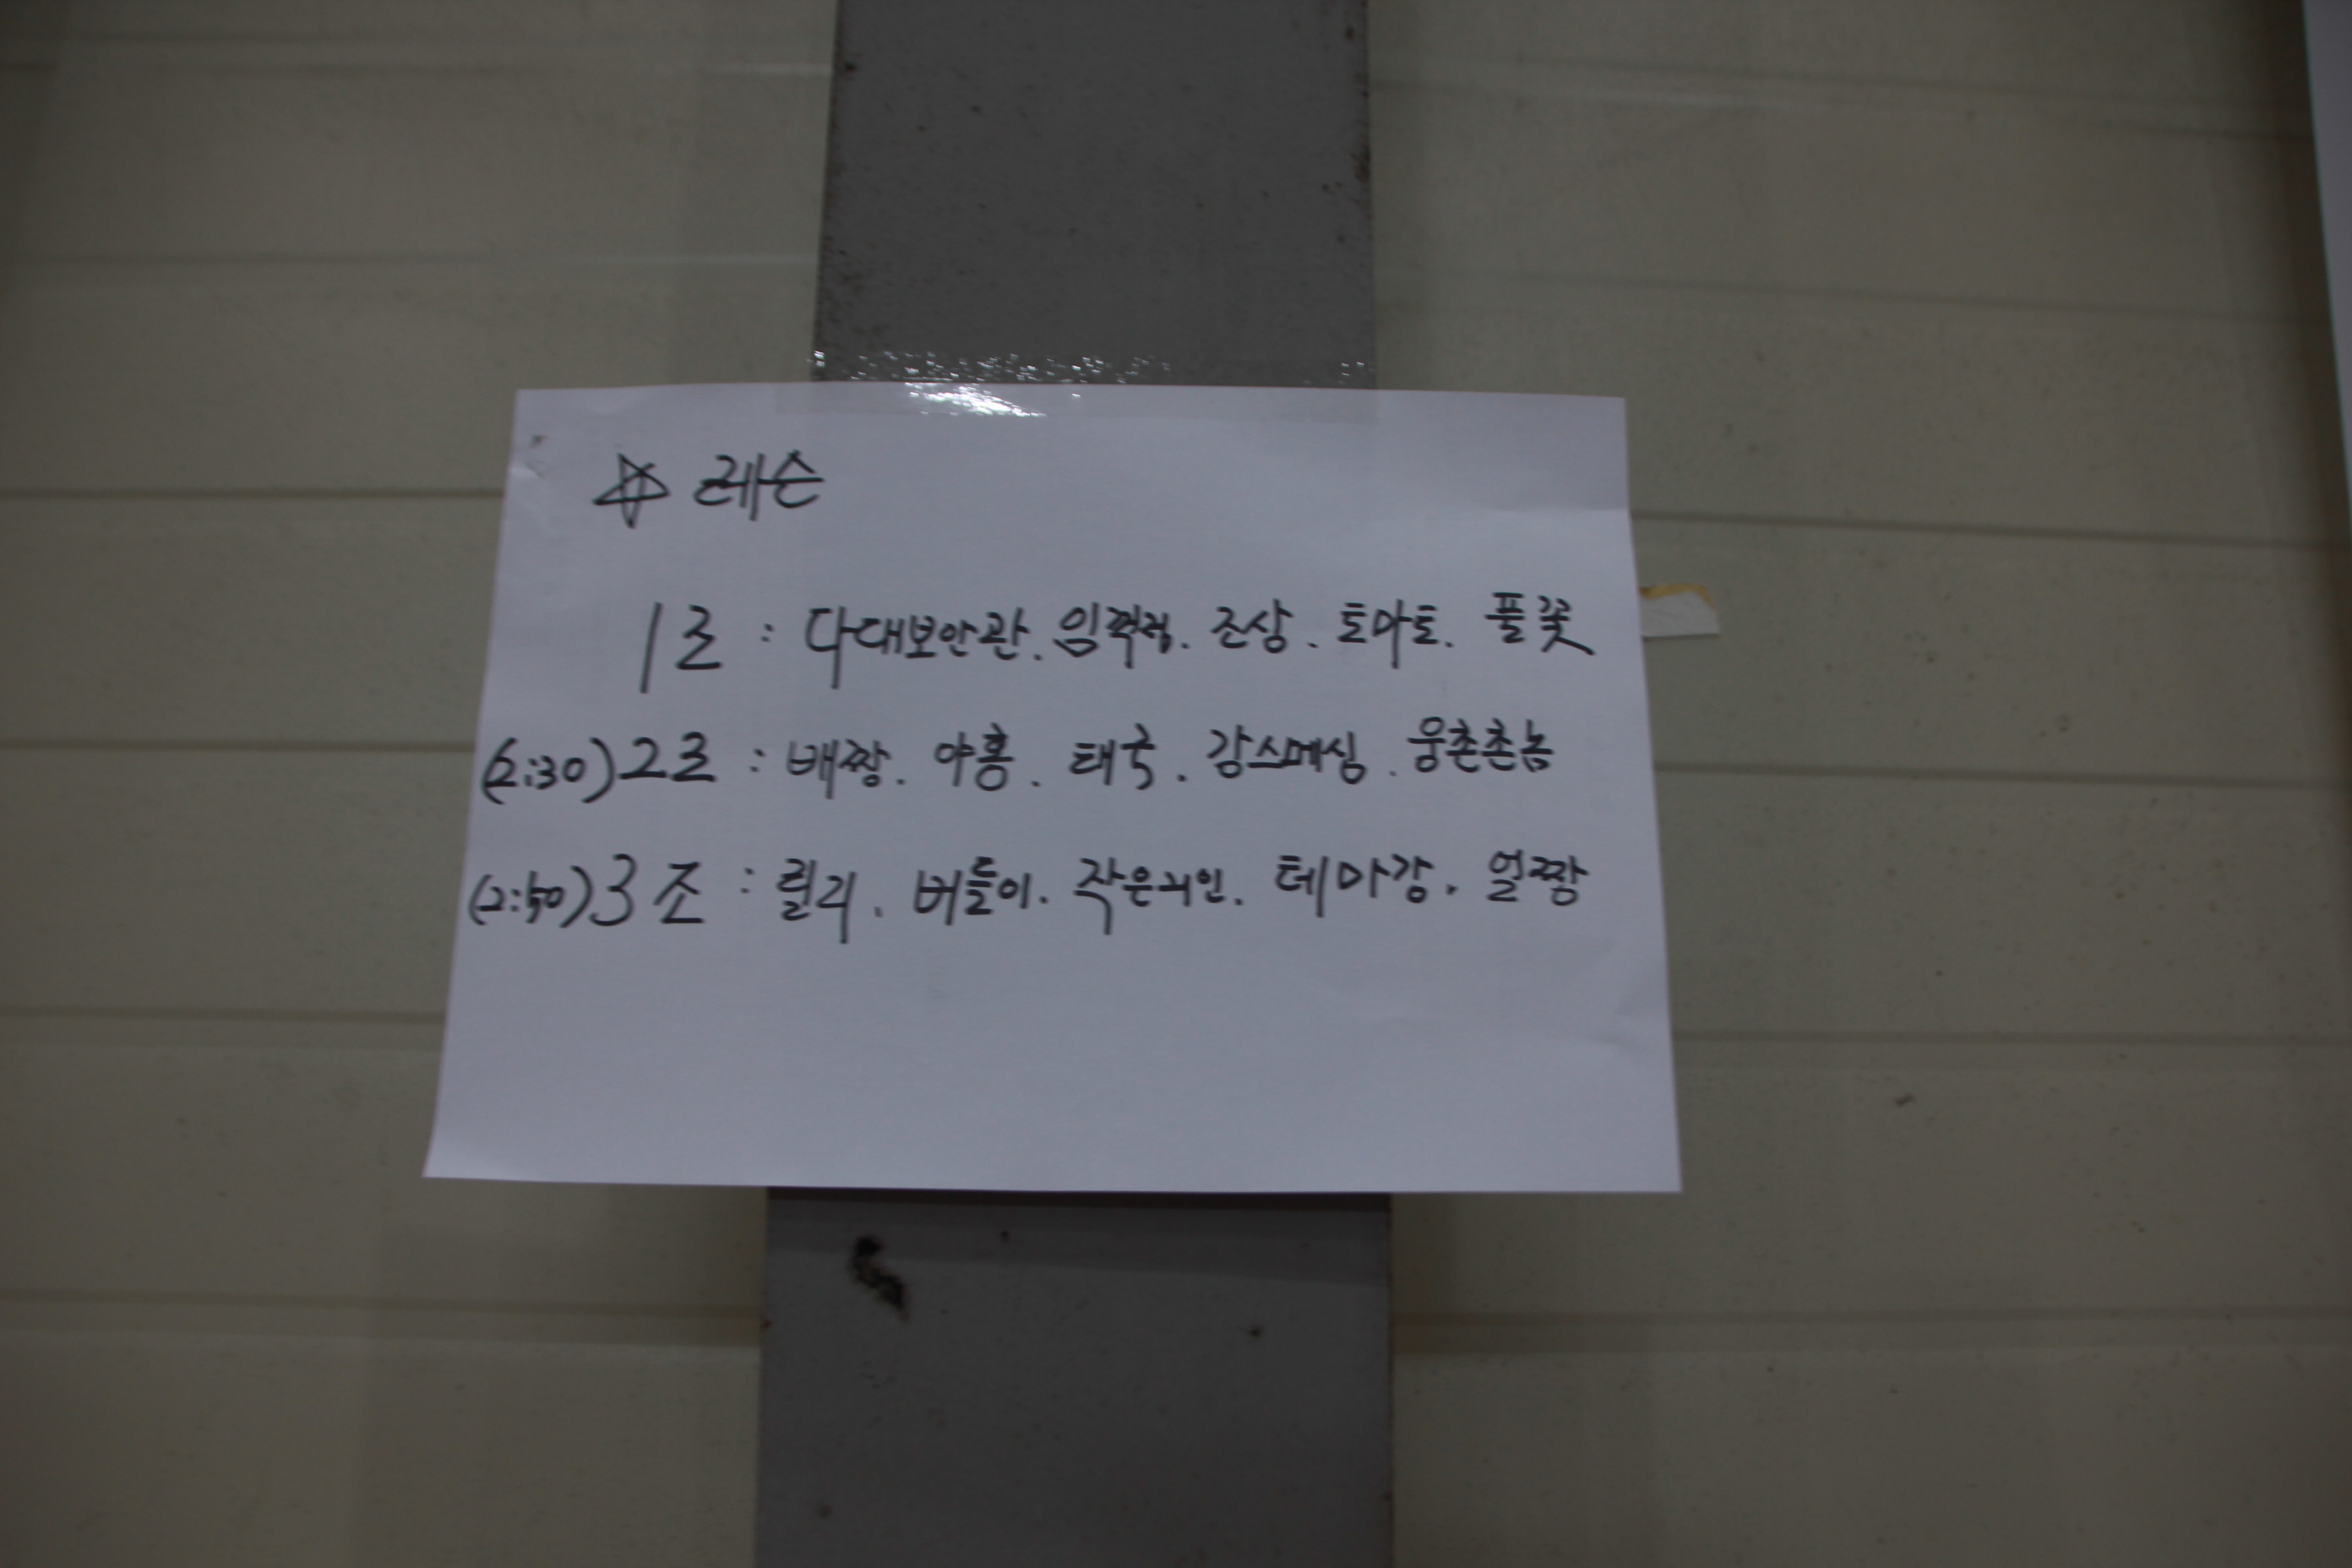 ☆ 레슨
1조 : 다대보안관. 임꺽정. 조상. 토마토. 풀꽃
(2:30) 2조 : 배짱. 야홍. 태국. 감스메싱. 웅촌촌놈
(2:50) 3조 : 릴리. 버들이. 작은귀인. 테마강. 얼짱